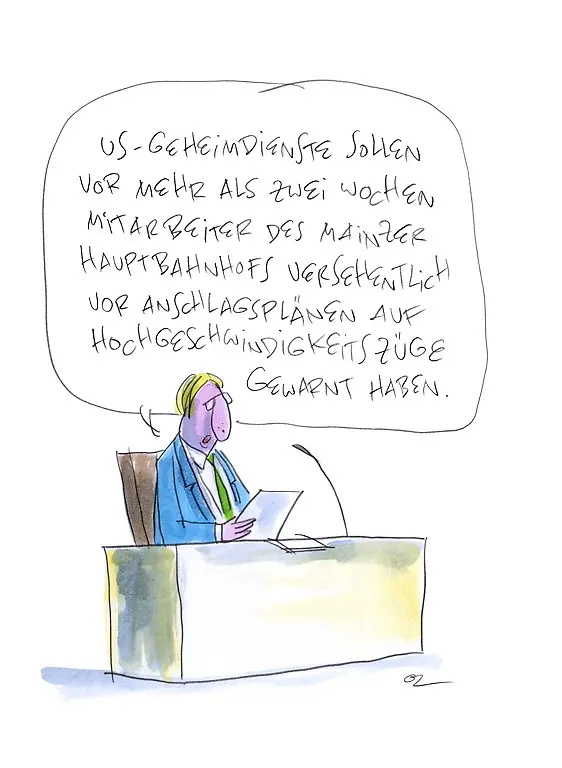 US-GEHEIMDIENSTE SOLLEN
VOR MEHR ALS ZWEI WOCHEN
MITARBEITER DES MAINZER
HAUPTBAHNHOFS VERSEHENTLICH
VOR ANSCHLAGSPLÄNEN AUF
HOCHGESCHWINDIGKEITSZÜGE
GEWARNT HABEN.